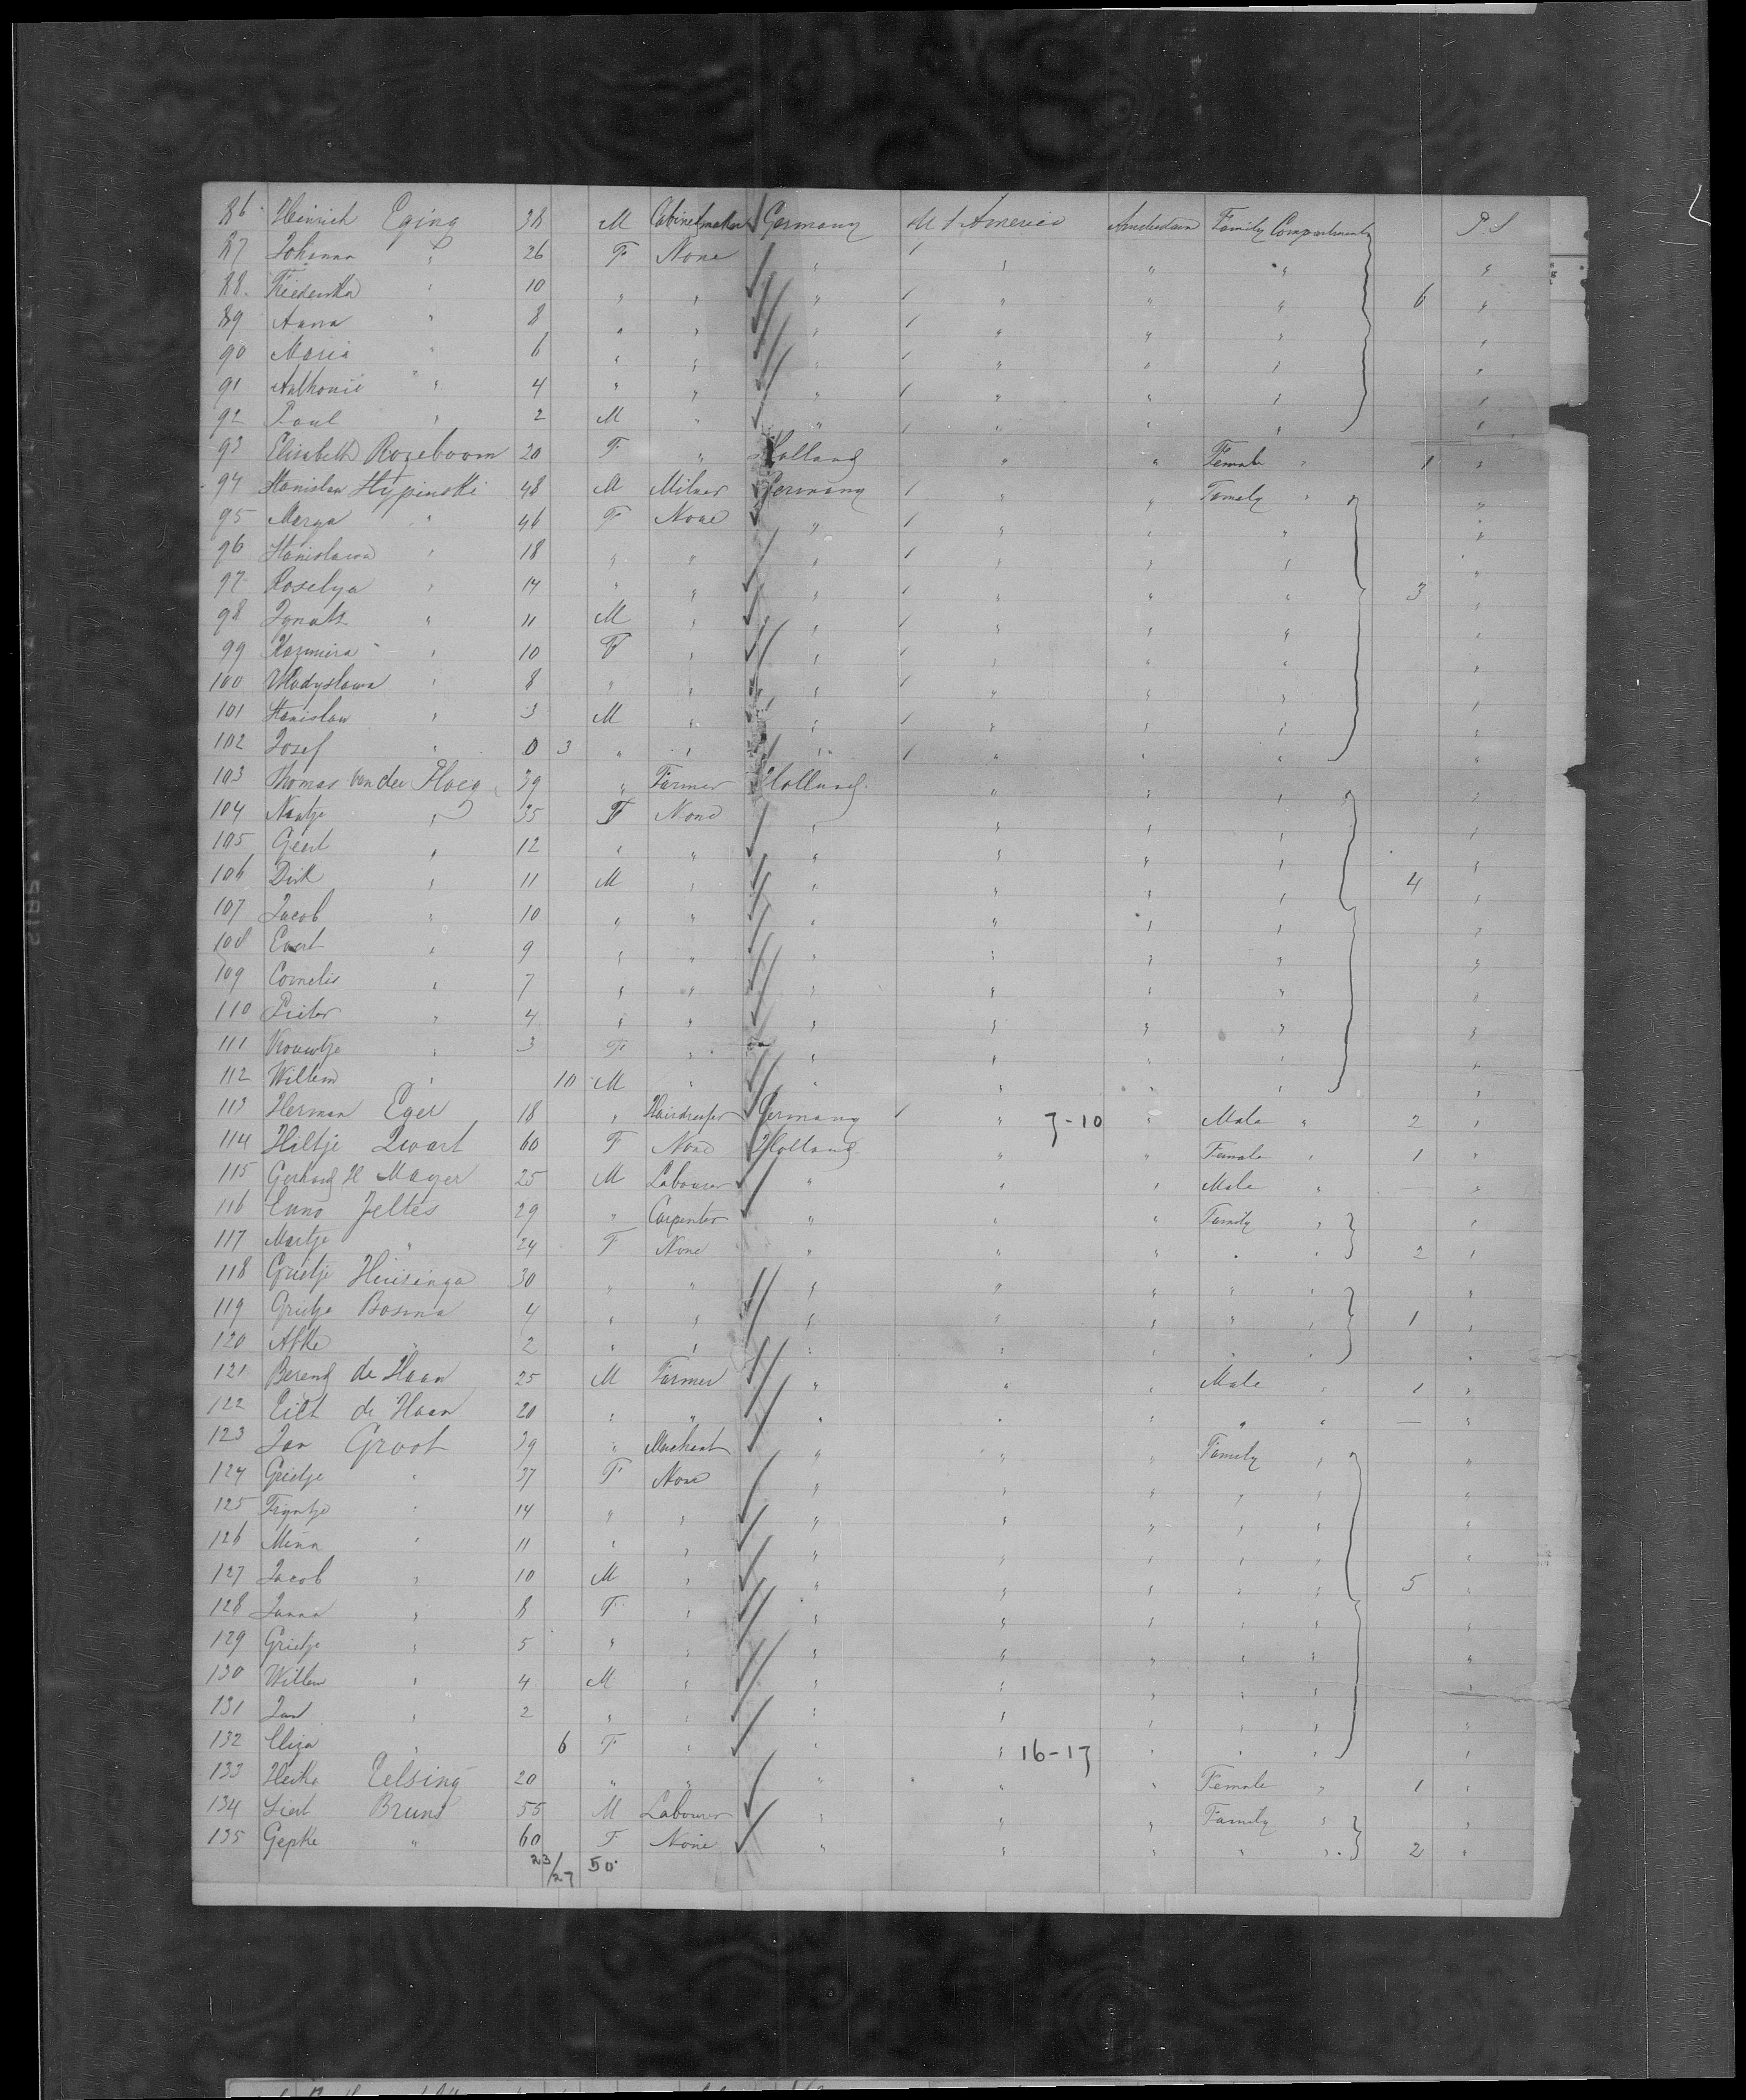 86 Heinrich Eging 38 M Cabinetmaker Germany U S America Amsterdam Family Compartment P. S
87 Johanna " 26 F None " " " " "
88 " 10 " " " " " " 6 "
89 Anna " 8 " " " " " " "
90 Maria " 6 " " " " " " "
91 Anthonie " 4 " " " " " " "
92 Paul " 2 M " " " " " "
93 Elisabeth Rozeboom 20 F " Holland " " Female " 1 "
94 Stanislaw Stypinski 48 M Milner Germany " " Family " "
95 Marya " 46 F None " " " " "
96 Stanislawa " 18 " " " " " " "
97 Roselya " 14 " " " " " " 3 "
98 Ignatz " 11 M " " " " " "
99 Kazmiera " 10 F " " " " " "
100 Wladyslawa " 8 " " " " " " "
101 Stanislaw " 3 M " " " " " "
102 Josef " 0 3 " " " " " " "
103 Thomas van der Ploeg 39 " Farmer Holland " " " "
104 Naatje " 35 F None " " " " "
105 Geert " 12 " " " " " " "
106 Dirk " 11 M " " " " " 4 "
107 Jacob " 10 " " " " " " "
108 Evert " 9 " " " " " " "
109 Cornelis " 7 " " " " " " "
110 Pieter " 4 " " " " " " "
111 Vrouwtje " 3 F " " " " " "
112 Willem " 10 M " " " " " "
113 Herman Eger 18 " Hairdresser Germany " 7-10 " Male " 2 "
114 Hiltje Zwart 60 F None Holland " " Female " 1 "
115 Gerhard H Mayer 25 M Labourer " " " Male " "
116 Enno Jeltes 29 " Carpenter " " " Family " "
117 Martje " 24 F None " " " " " 2 "
118 Grietje Huisinga 30 " " " " " " " "
119 Grietje Bosma 4 " " " " " " " 1 "
120 Afke " 2 " " " " " " " "
121 Berend de Haan 25 M Farmer " " " Male " 1 "
122 de Haan 20 " " " " " " " — "
123 Jan Groot 39 " Merchant " " " Family " "
124 Grietje " 37 F None " " " " " "
125 Tryntje " 14 " " " " " " " "
126 Mina " 11 " " " " " " " "
127 Jacob " 10 M " " " " " " 5 "
128 Janna " 8 F " " " " " " "
129 Grietje " 5 " " " " " " " "
130 Willem " 4 M " " " " " " "
131 Jan " 2 " " " " " " " "
132 Eliza " 6 F " " " 16-17 " " " "
133 Heika Eelsing 20 " " " " " Female " 1 "
134 Siert Bruns 55 M Labourer " " " Family " "
135 Gepke " 60 F None " " " " " 2 "
23/27 50